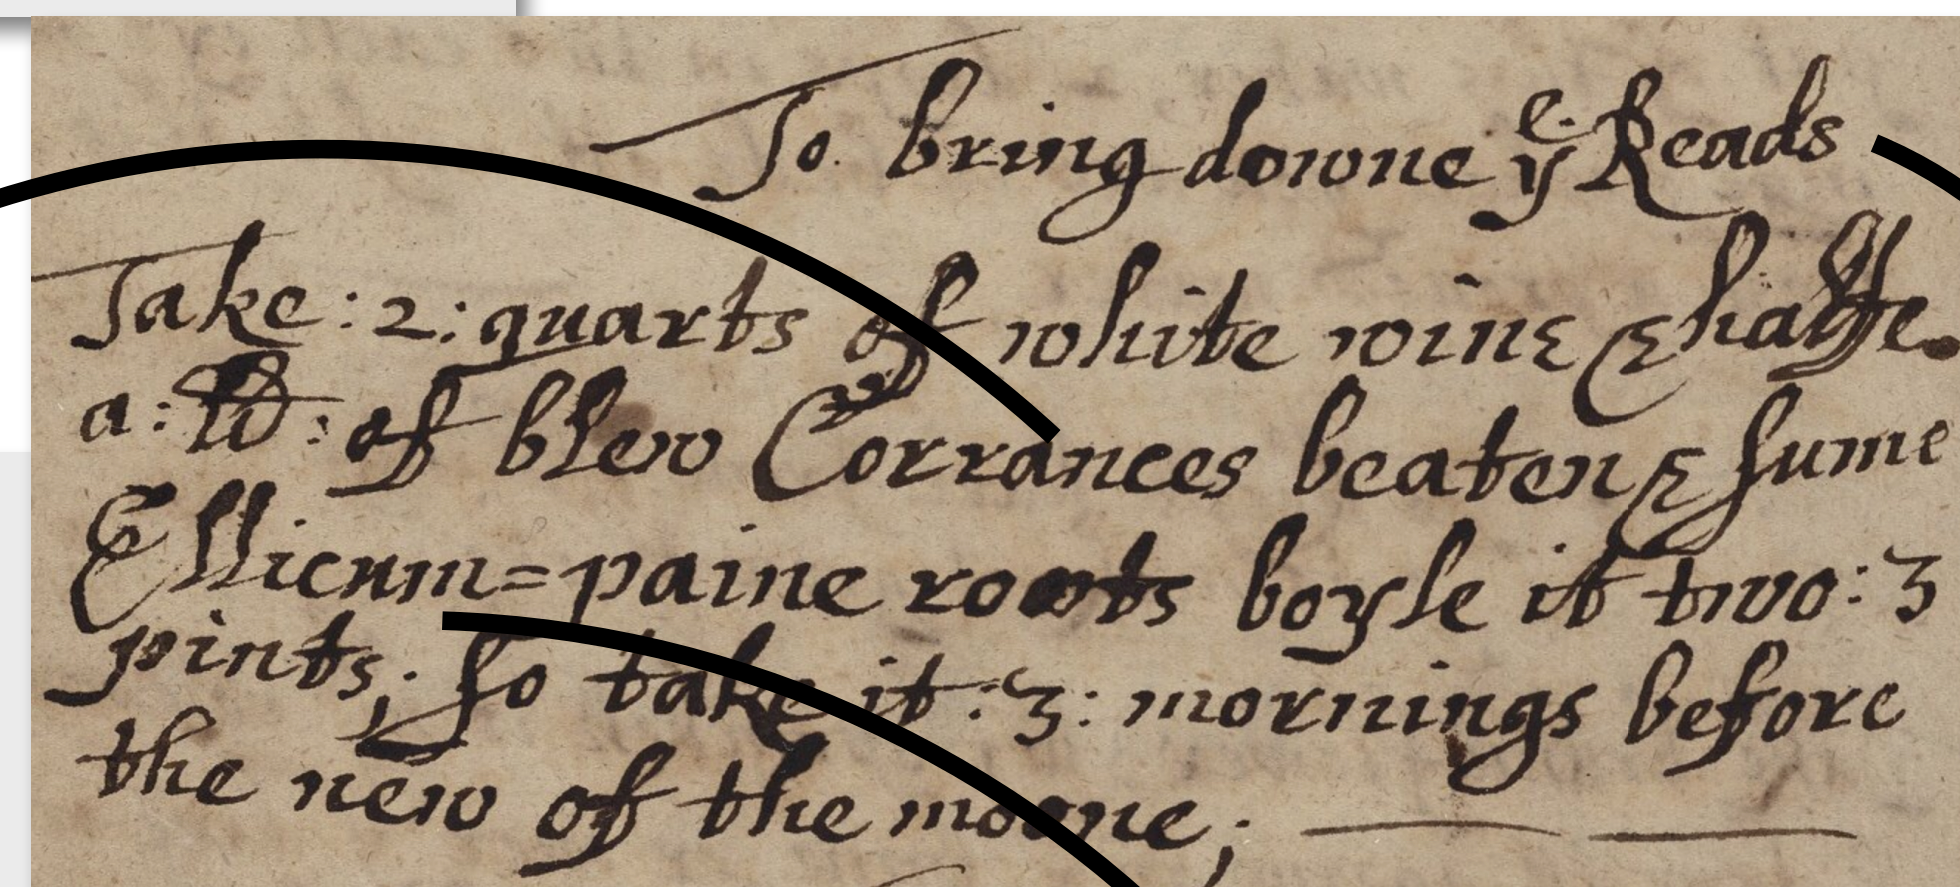 To bring downe yͤ Reads
Take : 2 : quarts of white wine & halfe
a : lb : of blew Corrances beaten & sume
Ellicum = paine roots boyle it two : 3
pints ; so take it : 3 : mornings before
the new of the moone ;